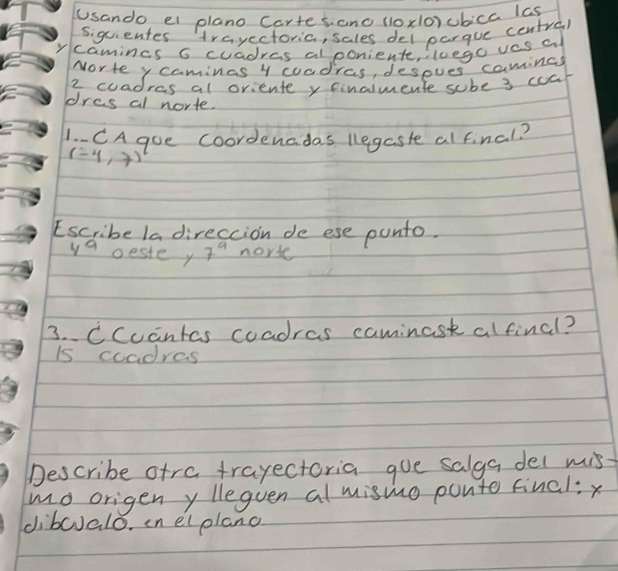 Usando el plano Cartesiano (10x10) ubica las
siguientes trayectoria, sales del parque central
y caminas 6 cuadras al poniente, luego vas al
Norte y caminas 4 cuadras, despues caminas
2 cuadras al oriente y finalmente sube 3 cua-
dras al norte.
1.- ¿A que coordenadas llegaste al final?
(-4, 7)
Escribe la dirección de ese punto.
4ª oeste y 7ª norte
3.- ¿Cuántas cuadras caminaste al final?
15 cuadras
Describe otra trayectoria que salga del mis-
mo origen y lleguen al mismo punto final: y
dibujalo. en el plano